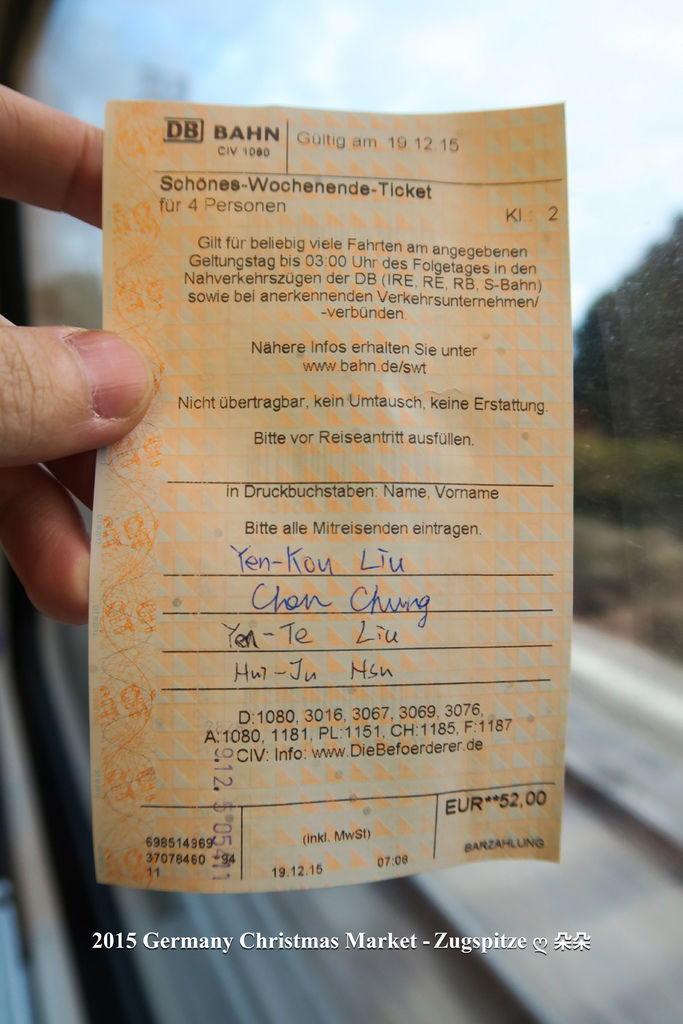 DB BAHN Gültig am 19.12.15
CIV 1080
Schönes-Wochenende-Ticket
für 4 Personen
Kl.: 2
Gilt für beliebig viele Fahrten am angegebenen
Geltungstag bis 03:00 Uhr des Folgetages in den
Nahverkehrszügen der DB (IRE, RE, RB, S-Bahn)
sowie bei anerkennenden Verkehrsunternehmen/
-verbünden.
Nähere Infos erhalten Sie unter
www.bahn.de/swt
Nicht übertragbar, kein Umtausch, keine Erstattung.
Bitte vor Reiseantritt ausfüllen.
in Druckbuchstaben: Name, Vorname
Bitte alle Mitreisenden eintragen.
Yen-Kou Liu
Chen Chung
Yen-Te Liu
Hui-Ju Hsu
D:1080, 3016, 3067, 3069, 3076,
A:1080, 1181, PL:1151, CH:1185, F:1187
CIV: Info: www.DieBefoerderer.de
EUR**52,00
BARZAHLUNG
(inkl. MwSt)
698514969
37078460 94
11
19.12.15 07:06
2015 Germany Christmas Market - Zugspitze ღ 朵朵